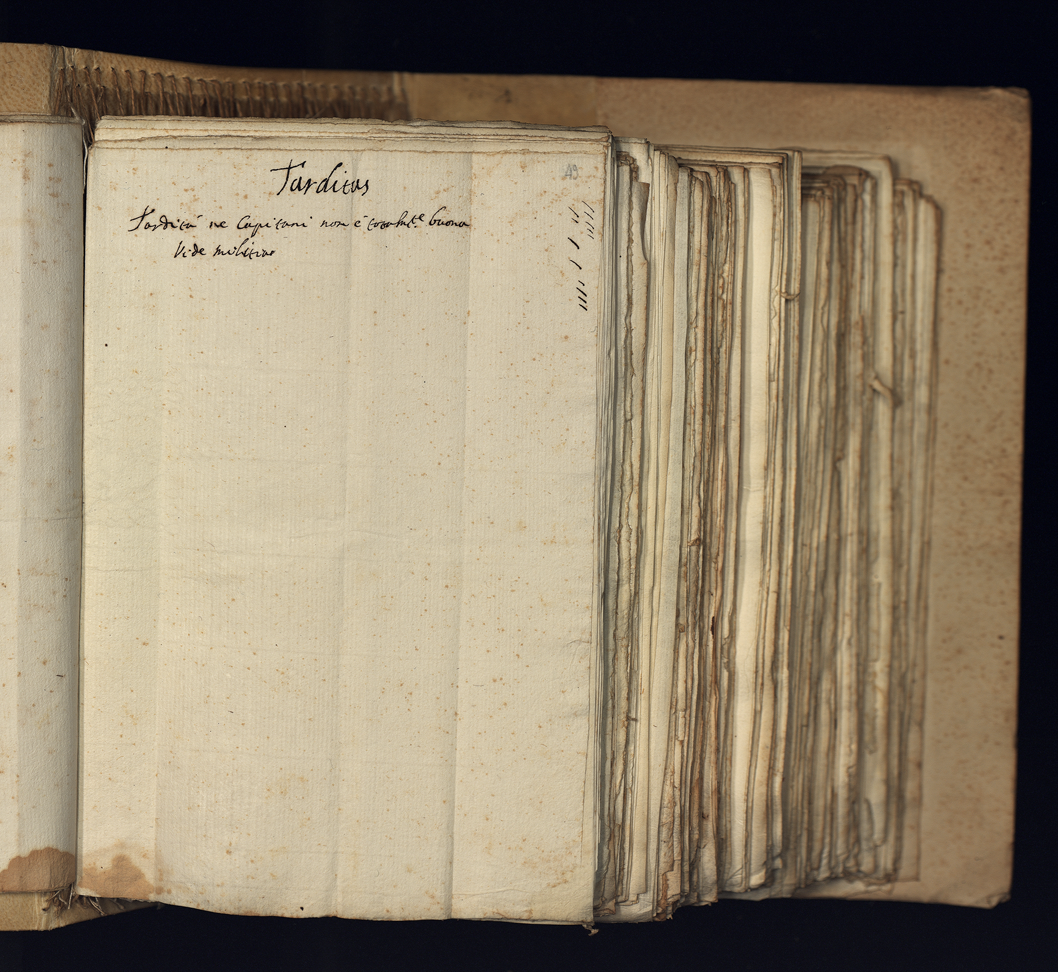 Tarditas
49
Tardità ne Capitani non è totalmt.e buona
Vide militiae